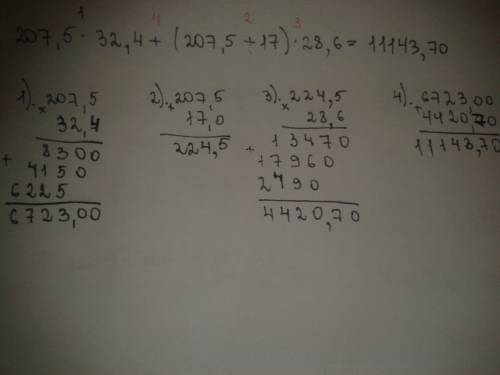 1 4 2 3
207,5 · 32,4 + (207,5 + 17) · 28,6 = 11143,70
1). × 207,5
32,4
8300
+ 4150
6225
6723,00
2). + 207,5
17,0
224,5
3). × 224,5
28,6
13470
+ 17960
2490
4420,70
4). + 6723,00
4420,70
11143,70